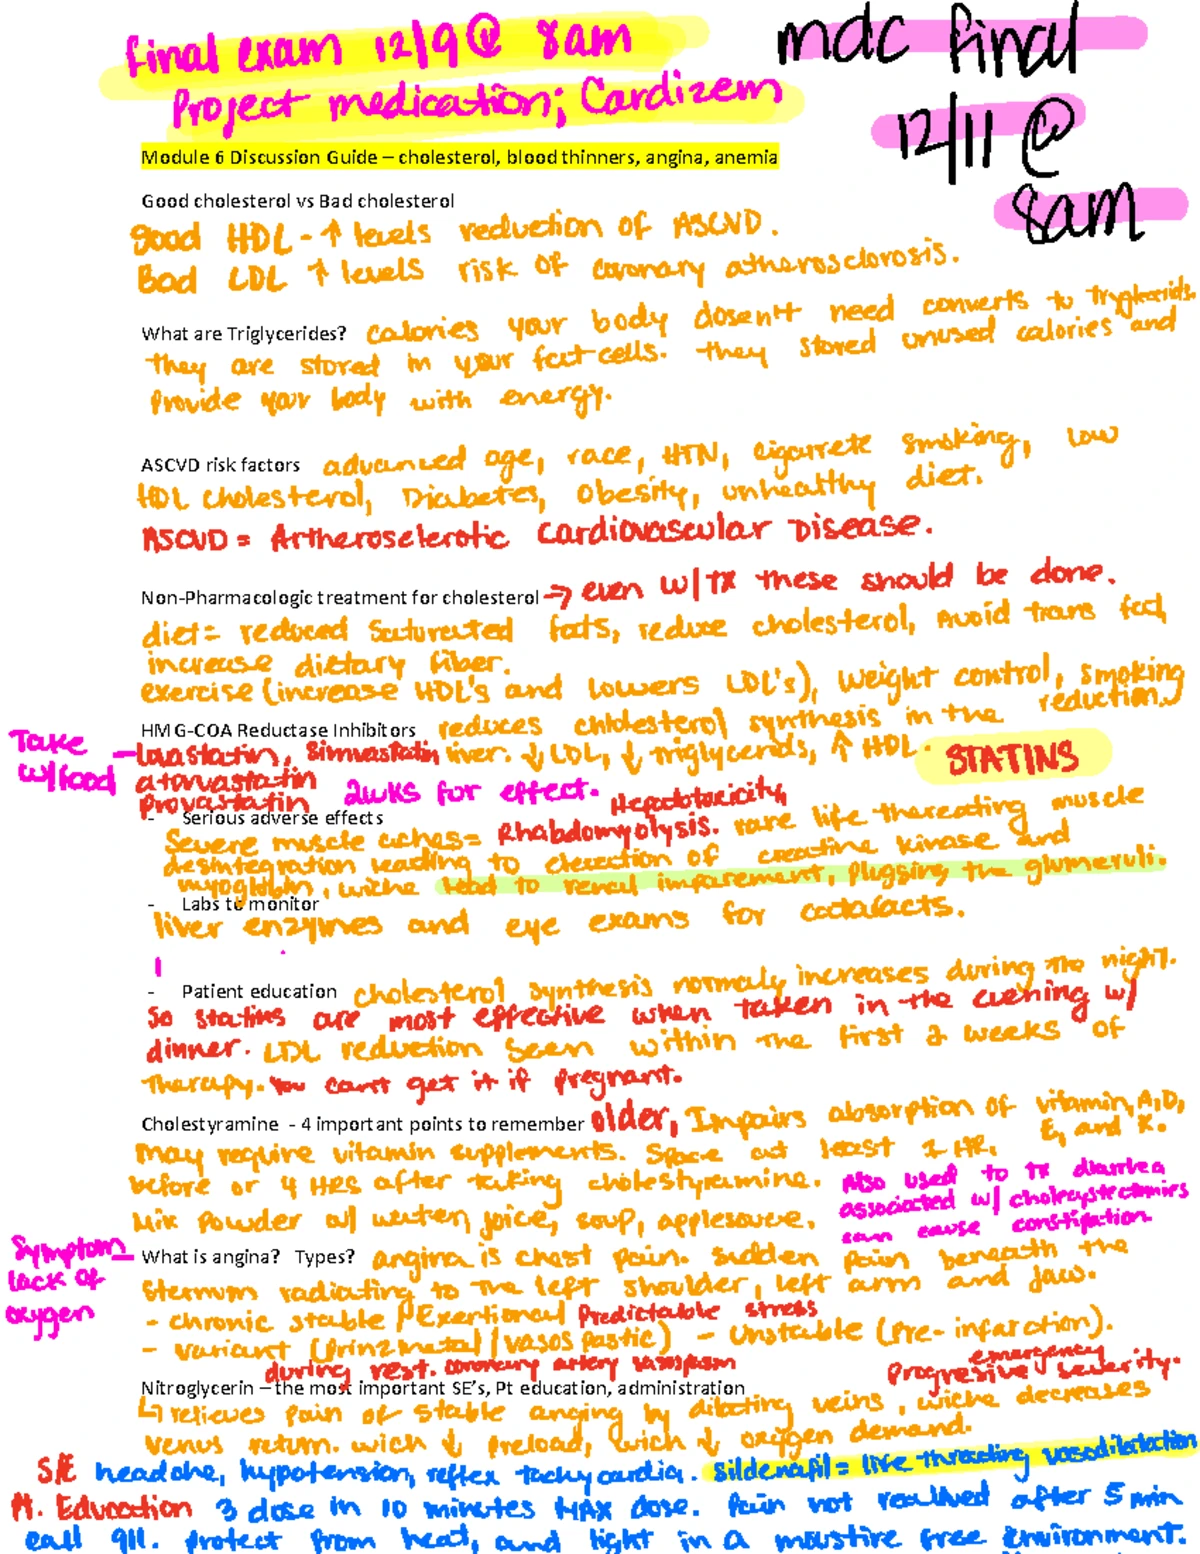 final exam 12/9 @ 8am
Project medication; Cardizem
mdc final
12/11 @
8am
Module 6 Discussion Guide – cholesterol, blood thinners, angina, anemia
Good cholesterol vs Bad cholesterol
good HDL - ↑ levels reduction of ASCVD.
Bad LDL ↑ levels risk of coronary atherosclorosis.
What are Triglycerides? calories your body dosen't need converts to tryglycerids.
They are stored in your fat cells. they stored unused calories and
provide your body with energy.
ASCVD risk factors advanced age, race, HTN, cigarrete smoking, low
HDL cholesterol, Diabetes, Obesity, unhealthy diet.
ASCVD = Artherosclerotic cardiovascular Disease.
Non-Pharmacologic treatment for cholesterol → even w/ TX these should be done.
diet= reduced saturated fats, reduce cholesterol, Avoid trans fat,
increase dietary fiber.
exercise (increase HDL's and lowers LDL's), weight control, smoking
reduction.
HMG-COA Reductase Inhibitors reduces cholesterol synthesis in the
Take w/food
– lovastatin, Simvastatin liver. ↓ LDL, ↓ triglycerids, ↑ HDL. STATINS
atorvastatin
provastatin 2wks for effect. Hepatotoxicity,
- Serious adverse effects
Severe muscle aches= Rhabdomyolysis. rare life threating muscle
desintegration leading to electron of creatine kinase and
myoglobin, wiche lead to renal imparement, plugging the glumeruli.
- Labs to monitor
liver enzymes and eye exams for cataracts.
- Patient education cholesterol synthesis normaly increases during the night.
So statins are most effective when taken in the evening w/
dinner. LDL reduction seen within the first 2 weeks of
therapy. You can't get it if pregnant.
Cholestyramine - 4 important points to remember older, Impairs absorption of vitamin, A, D,
E, and K.
may require vitamin supplements. Space at least 1 HR.
before or 4 HRS after taking cholestyramine.
Mix powder w/ water, joice, soup, applesauce.
Also used to tx diarrhea
associated w/ cholecystectomies
can cause constipation
Symptom
lack of
oxygen
– What is angina? Types? angina is chest pain. Sudden pain beneath the
sternum radiating to the left shoulder, left arm and jaw.
- chronic stable / Exertional Predictable stress
- variant (prinzmetal / vasospastic) - Unstable (pre-infarction).
during rest. coronary artery vasospasm
emergency
Progresive severity.
Nitroglycerin – the most important SE's, Pt education, administration
↳ relieves pain of stable anging by dilating veins, wiche decreases
venus return. wich ↓ preload, wich ↓ oxygen demand.
S/E headache, hypotension, reflex tachycardia. Sildenafil = life threating vasodilatation
Pt. Education 3 dose in 10 minutes MAX dose. Pain not resolved after 5 min
call 911. protect from heat, and light in a moustire free environment.